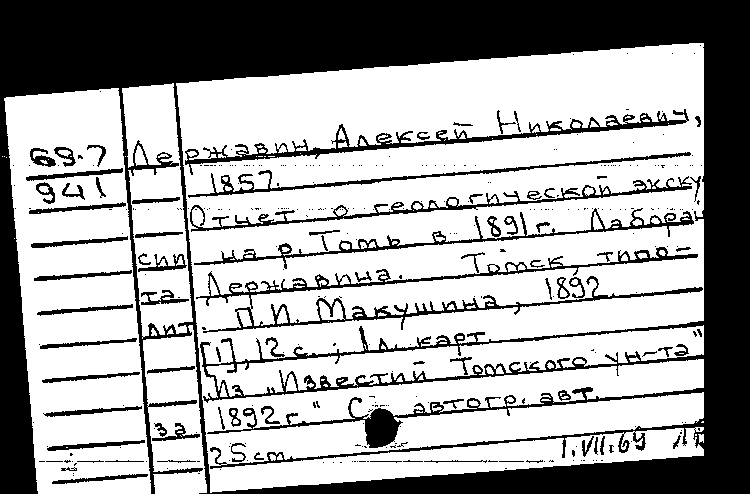 69-7 Державин, Алексей Николаевич,
941 1857.
Отчет о геологической экску
сии на р. Томь в 1891 г. Лаборан
та Державина. Томск, типо-
лит. П.И. Макушина, 1892.
[1], 12 с.; 1 л. карт.
„Из „Известий Томского ун-та"
за 1892 г." С автогр. авт.
25 cm.
1.VII.69